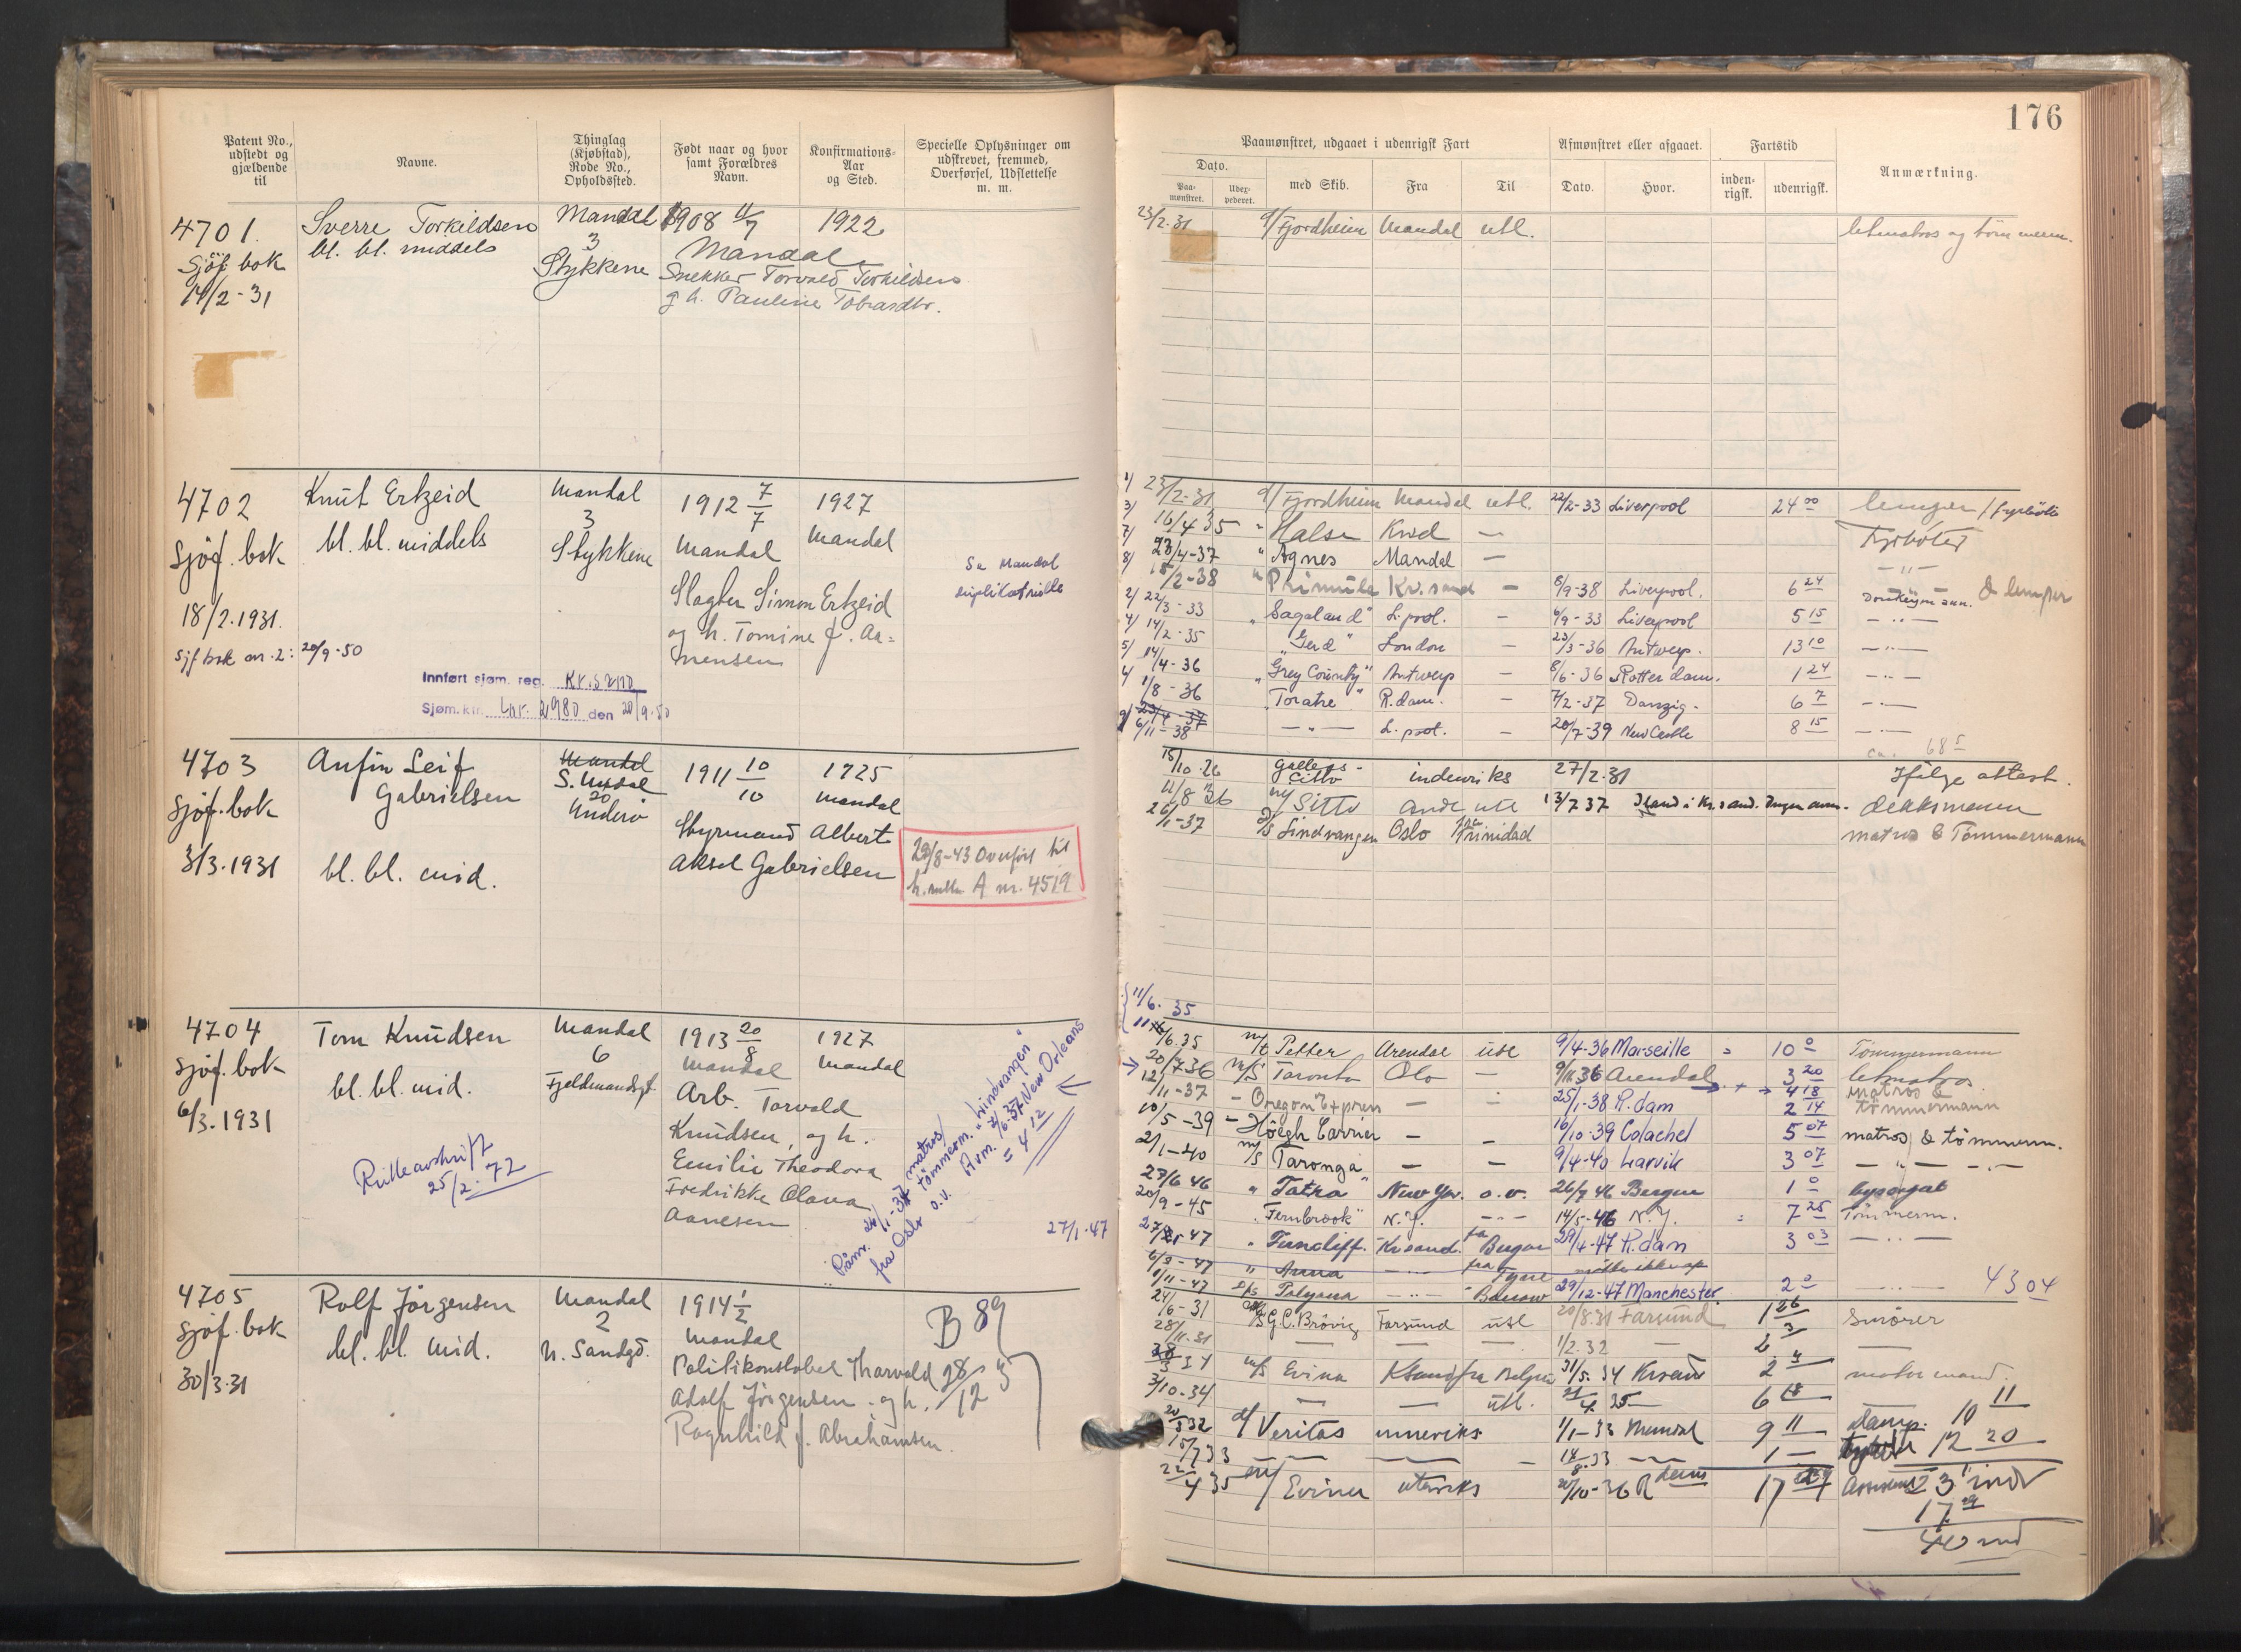 176
Patent No., udstedt og gjældende til
Navne.
Thinglag (Kjøbstad), Rode No., Opholdssted.
Født naar og hvor samt Forældres Navn.
Konfirmations-Aar og Sted.
Specielle Oplysninger om udskrevet, fremmed, Overførsel, Udslettelse m. m.
Paamønstret, udgaaet i udenrigsk Fart
Afmønstret eller afgaaet.
Fartstid
Anmærkning.
Dato.
Paa-mønstret.
Udex-pederet.
med Skib.
Fra
Til
Dato.
Hvor.
inden-rigsk.
udenrigsk.
4701.
Sjöf. bok
14/2-31
Sverre Torkildsen
bl. bl. middels
Mandal
3
Stykkene
1908 11/7
1922
Mandal
Snekker Torvald Torkildsen
g h. Pauline Tobiasdtr.
23/2.31 d/ Fjordheim Mandal utl. letmatros og tömmerm.
4702
Sjöf. bok
18/2.1931.
Sjf bok nr. 2: 20/9-50
Knut Ertzeid
bl. bl. middels
Innført sjøm. reg. Kr.sand
Sjøm.ktr. Lnr. 2980 den 20/9-50
Mandal
3
Stykkene
1912 7/7
Mandal
Slagter Simon Ertzeid
og h. Tomine f. Aa=
mensen
1927
Mandal
Se Mandal
duplikatrulle
1/ 23/2-31 d/ Fjordheim Mandal utl. 22/2-33 Liverpool 24 00 lemper / fyrböter
3/ 16/4 35 " Halse Krsd — Fyrböter
7/ 23/4-37 " Agnes Mandal — -"-
8/ 15/2-38 " Primula Kr.sand — 8/9-38 Liverpool. 6 24 Donkeyman. & lemper
2/ 22/3-33 "Sagaland" L.pool. — 6/9-33 Liverpool 5 15 -"-
4/ 14/2-35 "Gerd" London — 23/3-36 Antwerp. 13 10 -"-
5/ 14/4-36 "Grey County" Antwerp — 8/6-36 Rotterdam. 1 24 -"-
1/8-36 "Toratre" R.dam. — 7/2-37 Danzig. 6 7 -"-
23/4-37
9/ 6/11-38 -"- L.pool. — 20/7-39 New Castle 8 15 -"-
ca. 68 5
4703
Sjöf. bok
3/3.1931
Anfin Leif
Gabrielsen
bl. bl. mid.
Mandal
S. Undal
20
Underö
1911 10/10
Styrmand Albert
Aksel Gabrielsen
1925
Mandal
28/8-43 Overfört til
h.rulle A nr. 4519
15/10.26 galleas Citto indenriks 27/2.31 Ifölge attest.
11/8 36 m/ Sitto 13/7 37 deksmann
26/1-37 D/S Lindvangen Oslo Trinidad matros & Tömmermann
4704
Sjöf. bok
6/3.1931
Tom Knudsen
bl. bl. mid.
Rulleavskrift
25/2.72
Mandal
6
Fjeldmandsgt.
1913 20/8
Mandal
Arb. Torvald
Knudsen, og h.
Emilie Theodora
Fredrikke Olava
Aanesen
1927
Mandal
Påm. 26/1-37 matros/
tömmerm. "Lindvangen"
fra Oslo o.v.
Avm. 7/6-37 New Orleans
= 4 12
27/1-47
11/6.35
11/6.35 m/t Petter Arendal utl 9/4-36 Marseille = 10 0 Tömmermann
20/7 36 m/S Taronto Oslo — 9/11 36 Arendal 3 20 letmatros
4 18 matros &
12/11-37 - Oregon Express — 25/1-38 R.dam 2 14 tömmermann
10/5-39 - Höegh Carrier — — 16/10-39 Colachel 5 07 matros & tömmerm.
2/1-40 m/s Taronga — — 9/4-40 Larvik 3 07 -"-
27/6 46 " Tatra New Yor. o.v. 26/7 46 Bergen 1 0 byssegut
20/9-45 "Fernbrook" N.Y. -"- 14/5-46 N.Y. = 7 25 Tömmerm.
47 " Ferncliff. Kr.sand. fra Bergen 29/4-47 R.dam 3 03 -"-
6/9-47 " Anna -"- fra Tyne
1/11-47 D/s Polyana -"- 29/12-47 Manchester 2 0 43 04
4705
Sjöf. bok
30/3.31
Rolf Jörgensen
bl. bl. mid.
Mandal
2
N. Sandgd.
1914 1/2
Mandal
Politikonstabel Tharvald
Adolf Jörgensen og h.
Ragnhild f. Abrahamsen.
B 89
28/12
24/6-31 G.C. Brövig Farsund utl 20/8.31 Farsund 1 26 Smörer
28/11.31 — — — 1/2.32 — 2 3 —
34 m/s Evina Ksand fra Belgia 31/5.34 Krsand 2 3 motormand.
3/10-34 — — utl. 35 — 6 18 — 10 11
20/3 32 d/ Veritas innenriks 1/1-33 Mandal 9 11 12 20
15/7 33 — — — 14/8.33 — 1 —
22/4 35 m/ Evina utenriks 10-36 R dam 17 23
17
40 md